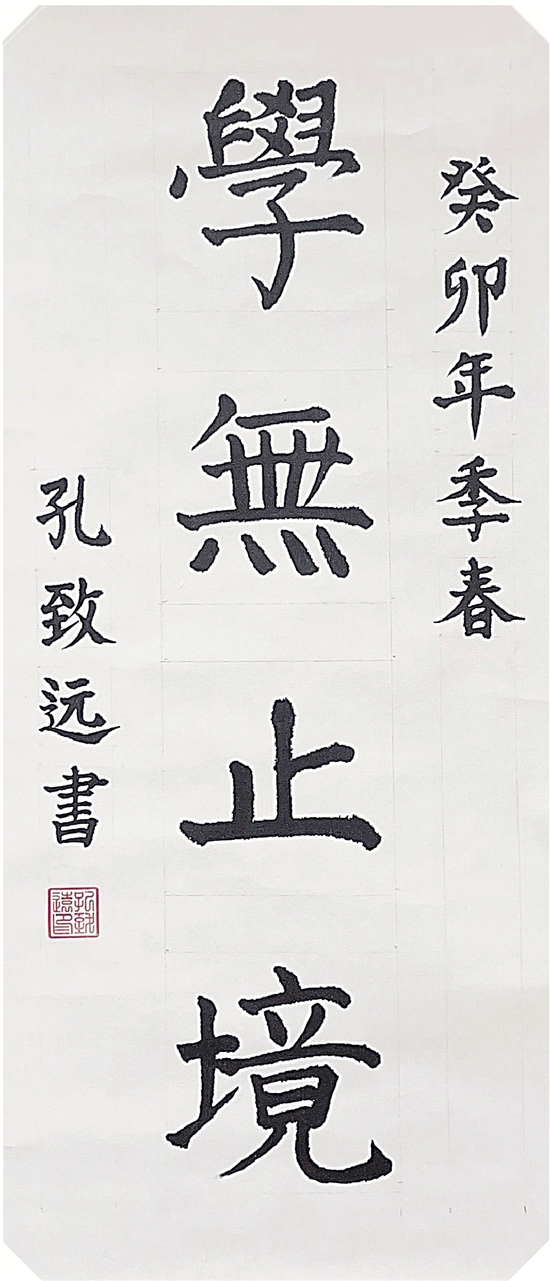 癸卯年季春
學無止境
孔致远書
孔致遠印